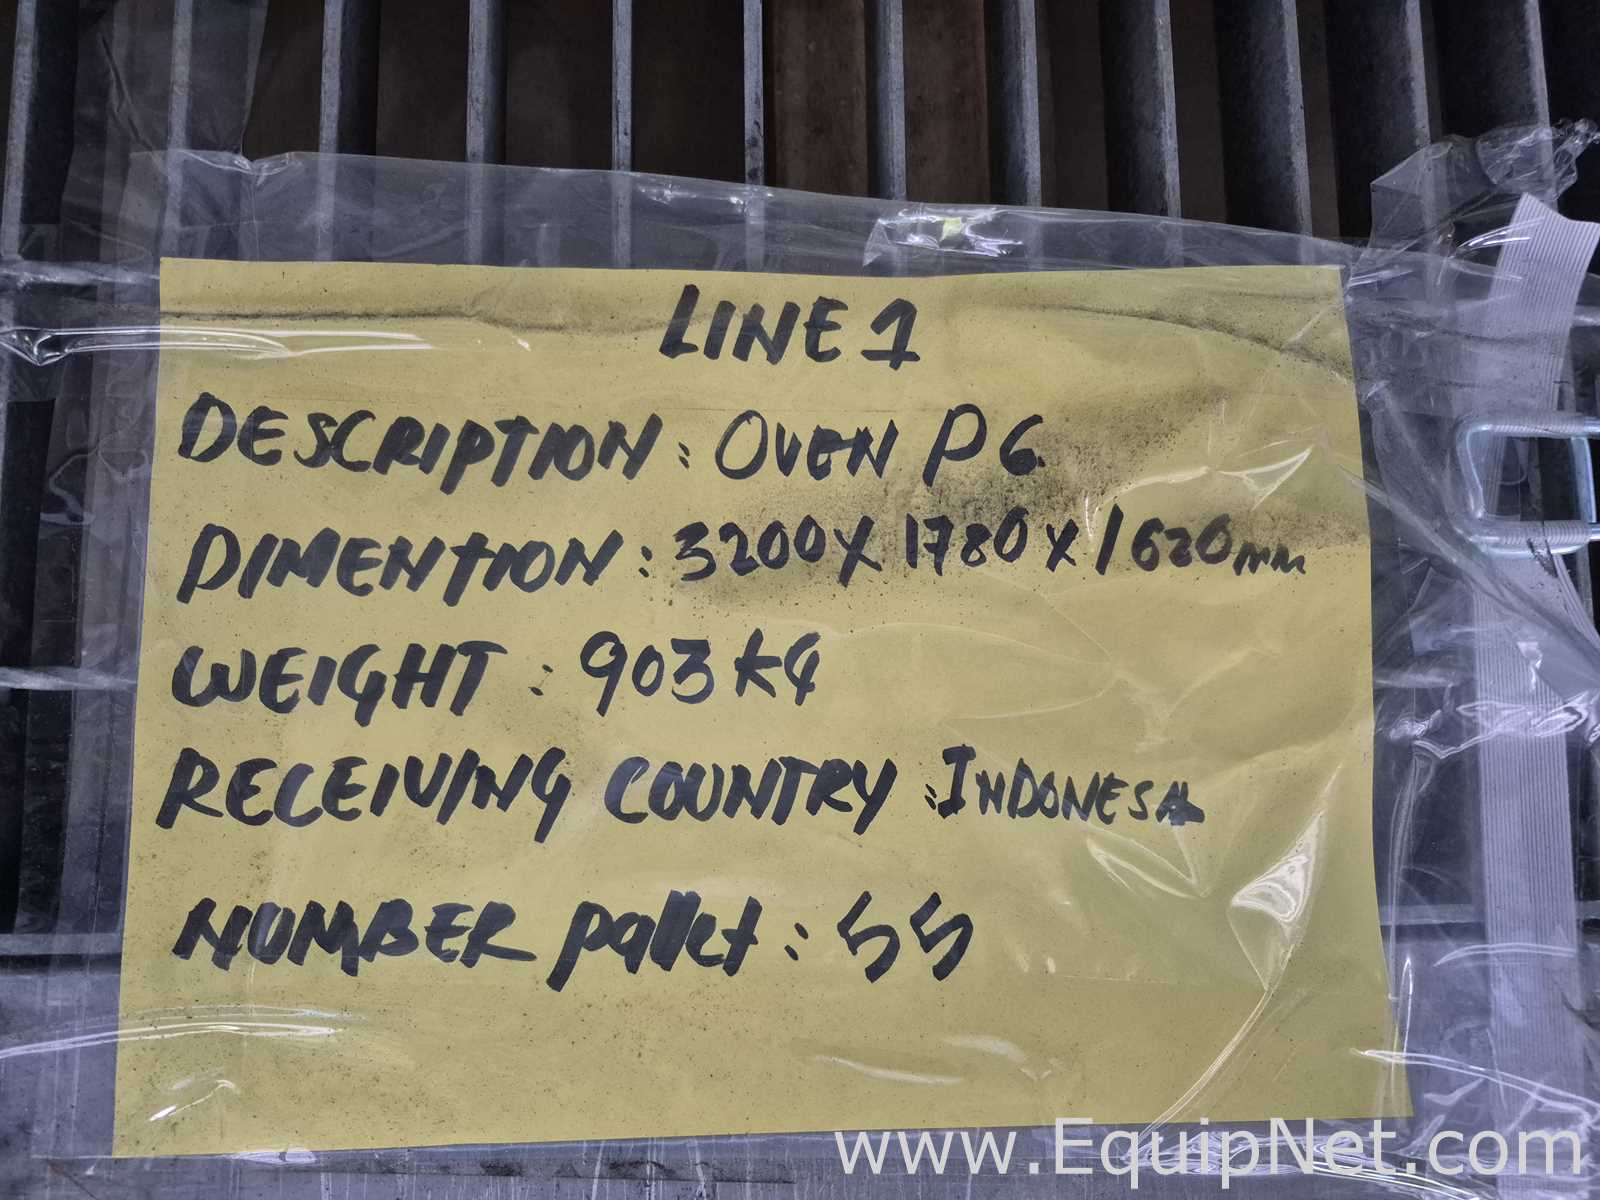 LINE 1
DESCRIPTION: OVEN P6
DIMENTION: 3200X1780X1620mm
WEIGHT: 903 KG
RECEIVING COUNTRY: INDONESIA
NUMBER pallet: 55
www.EquipNet.com